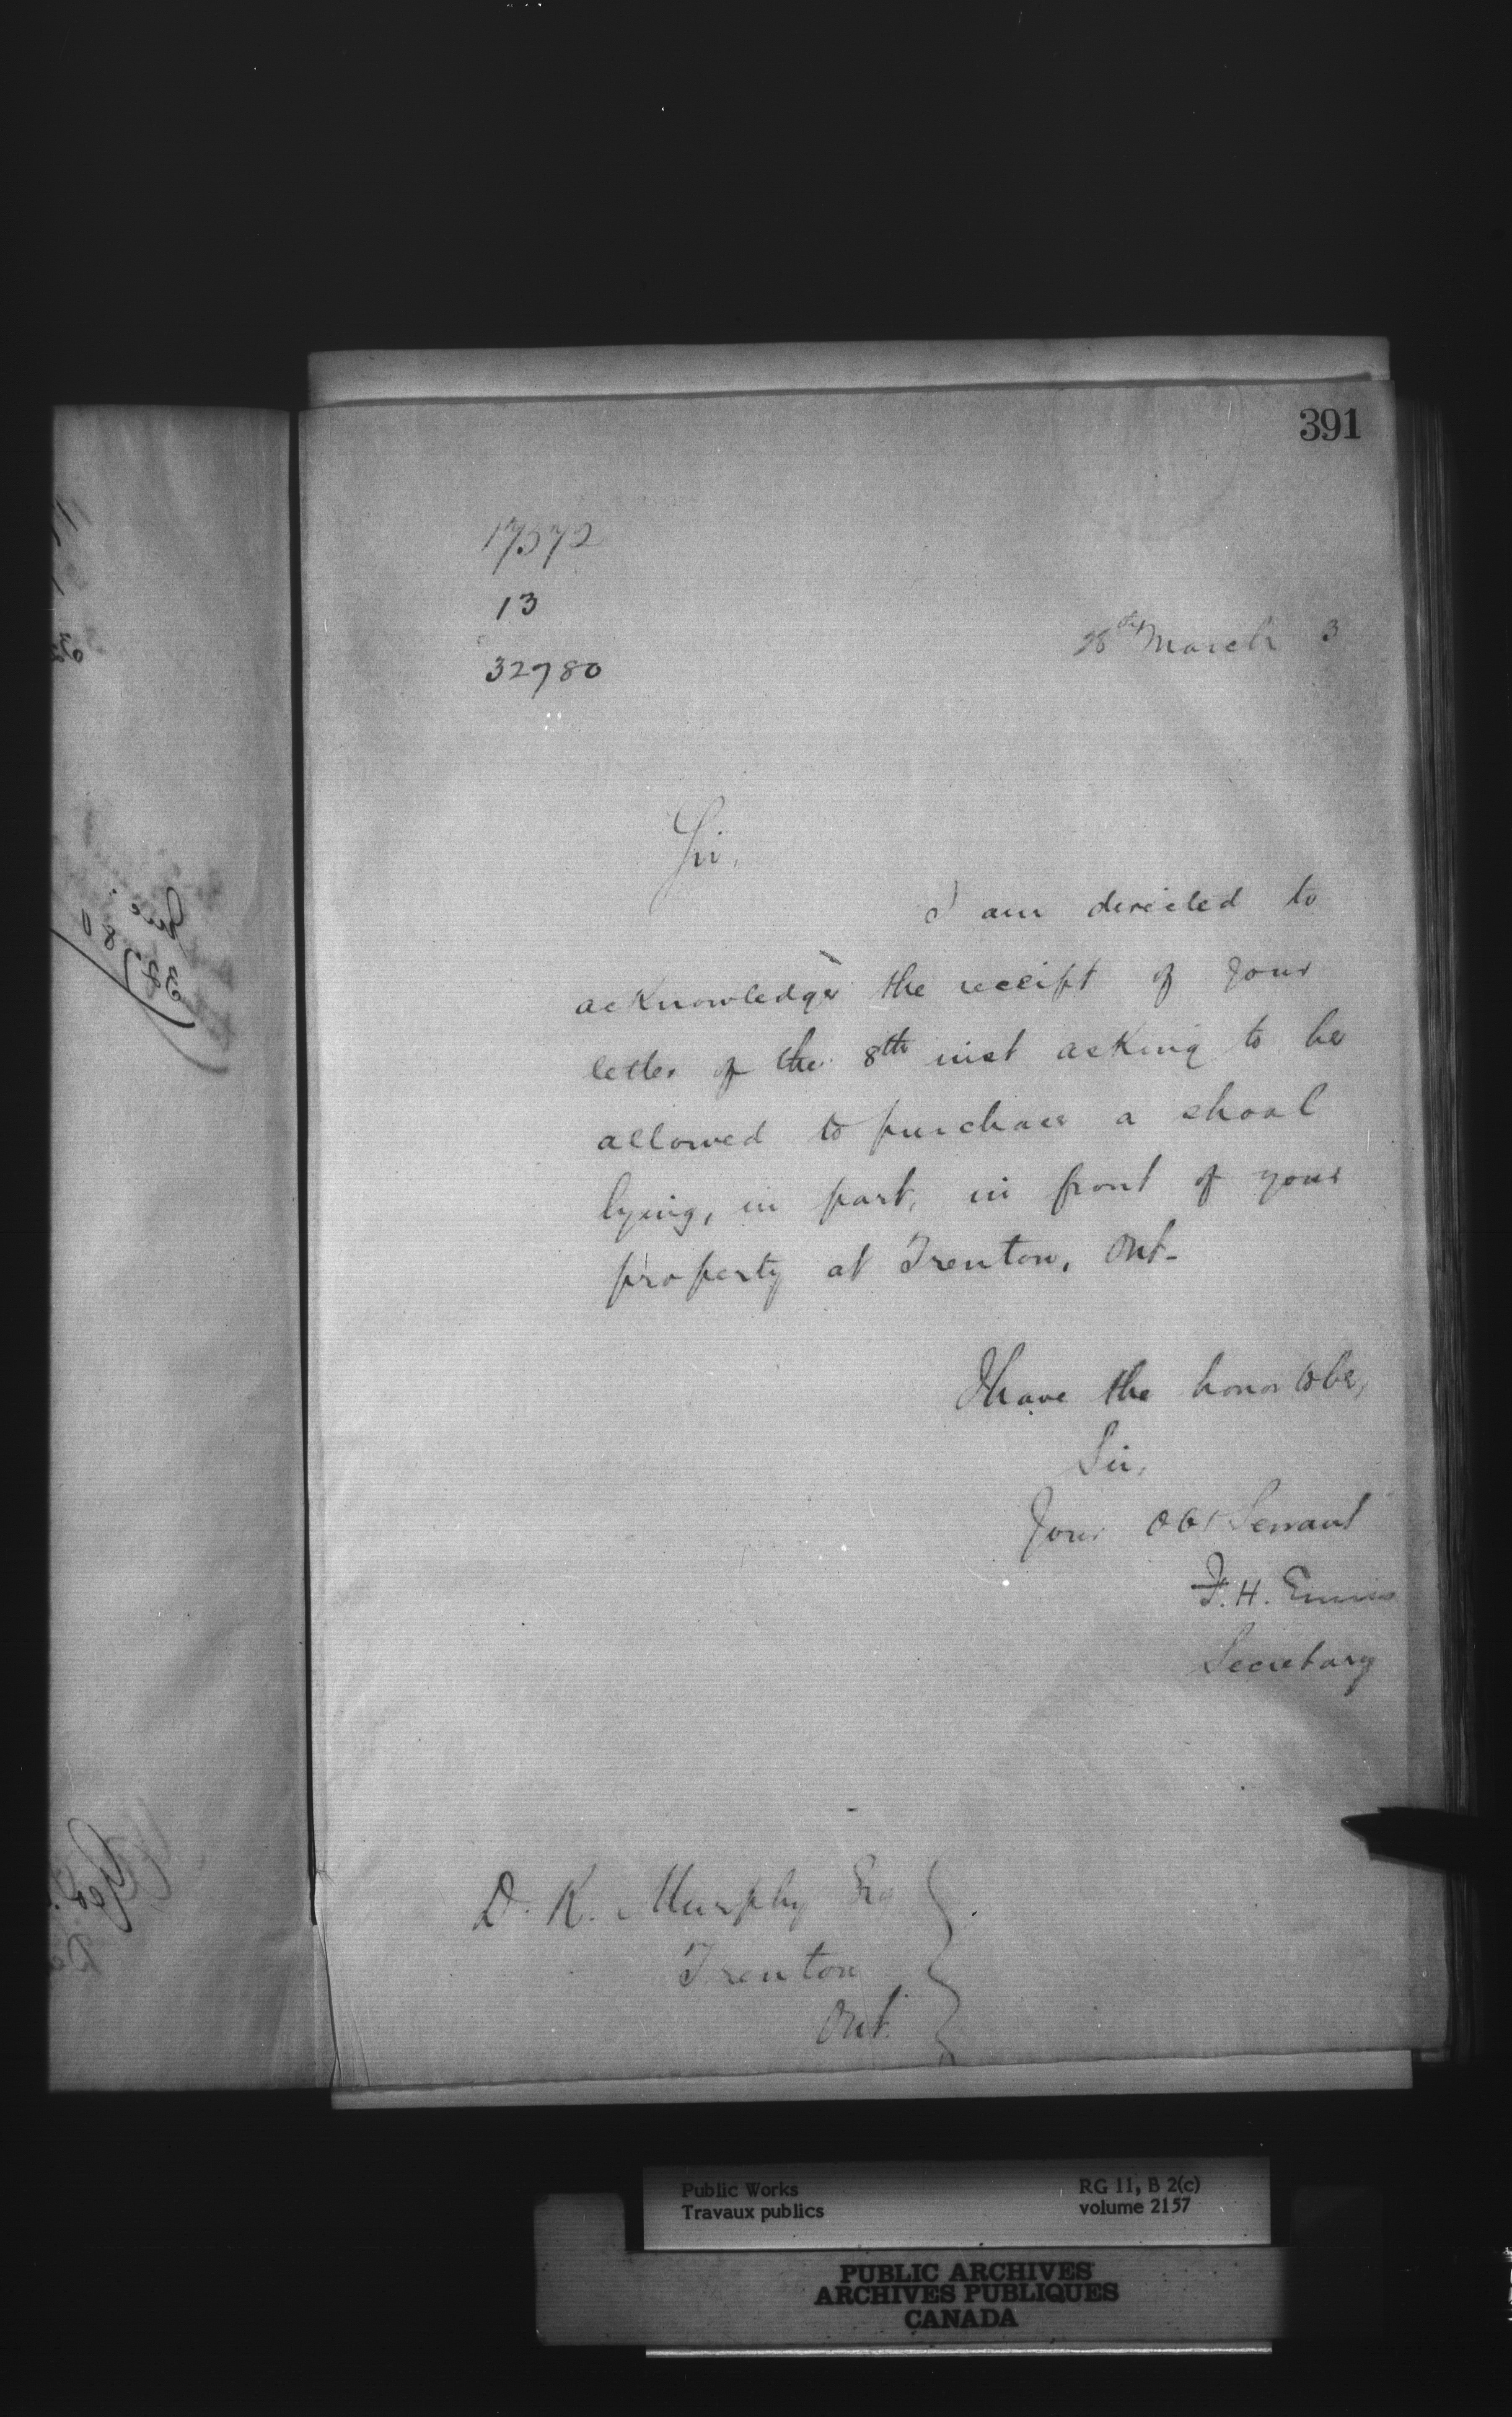 391
17572
13
32780
28th March 3
Sir,
I am directed to
acknowledge the receipt of your
letter of the 8th inst asking to be
allowed to purchase a shoal
lying, in part, in front of your
property at Trenton, Ont-
I have the honor to be,
Sir,
Your Obt Servant
F. H. Ennis
Secretary
D. K. Murphy Esq
Trenton
Ont.
Public Works
Travaux publics
RG 11, B 2(c)
volume 2157
PUBLIC ARCHIVES
ARCHIVES PUBLIQUES
CANADA